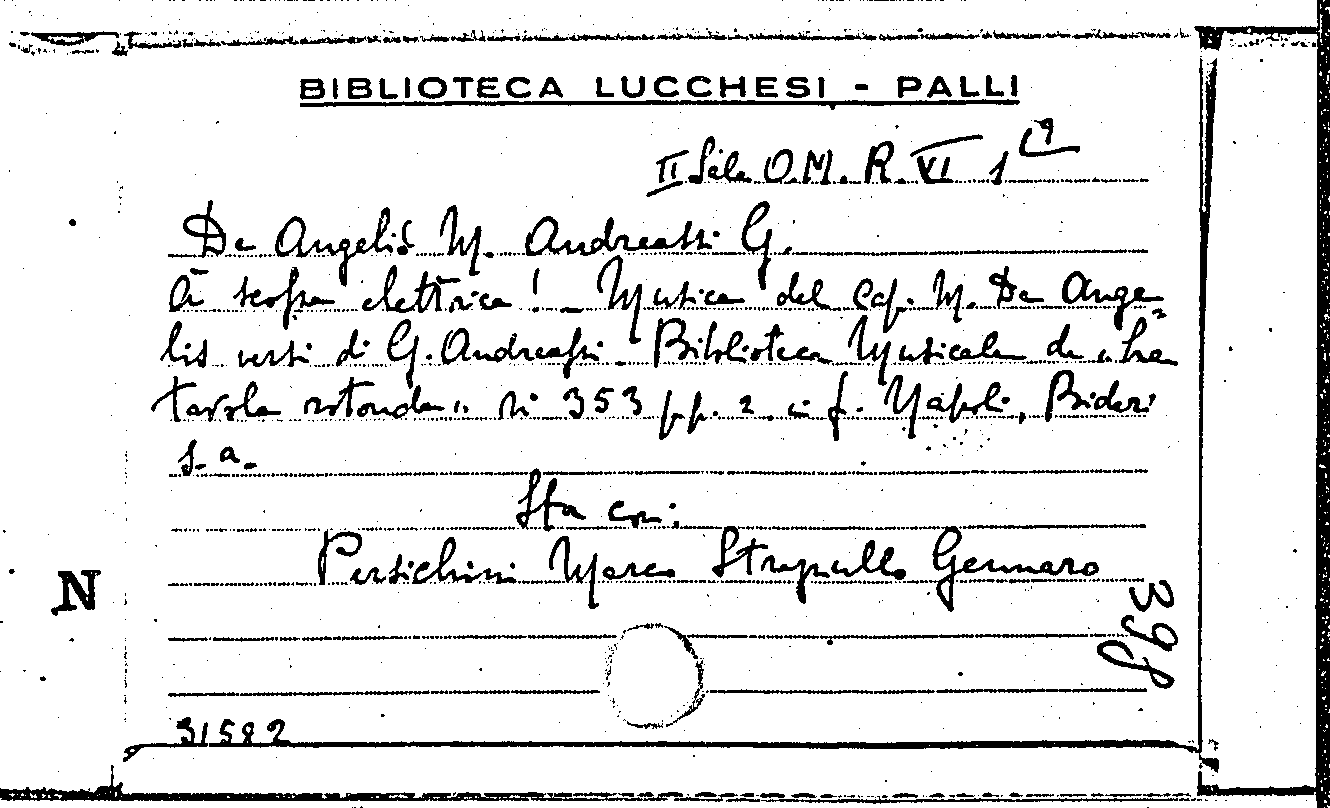 BIBLIOTECA LUCCHESI - PALLI
II Sala O.M. R. VI 1
De Angelis M. Andreassi G.
A scossa elettrica! _ Musica del Cap. M. De Ange
lis versi di G. Andreassi. Biblioteca Musicale de "La
tavola rotonda" N 353 pp. 2. in f. Napoli, Bideri
s. a.
Sta con:
Persichini Marco Strapullo Gennaro
N
398
31582